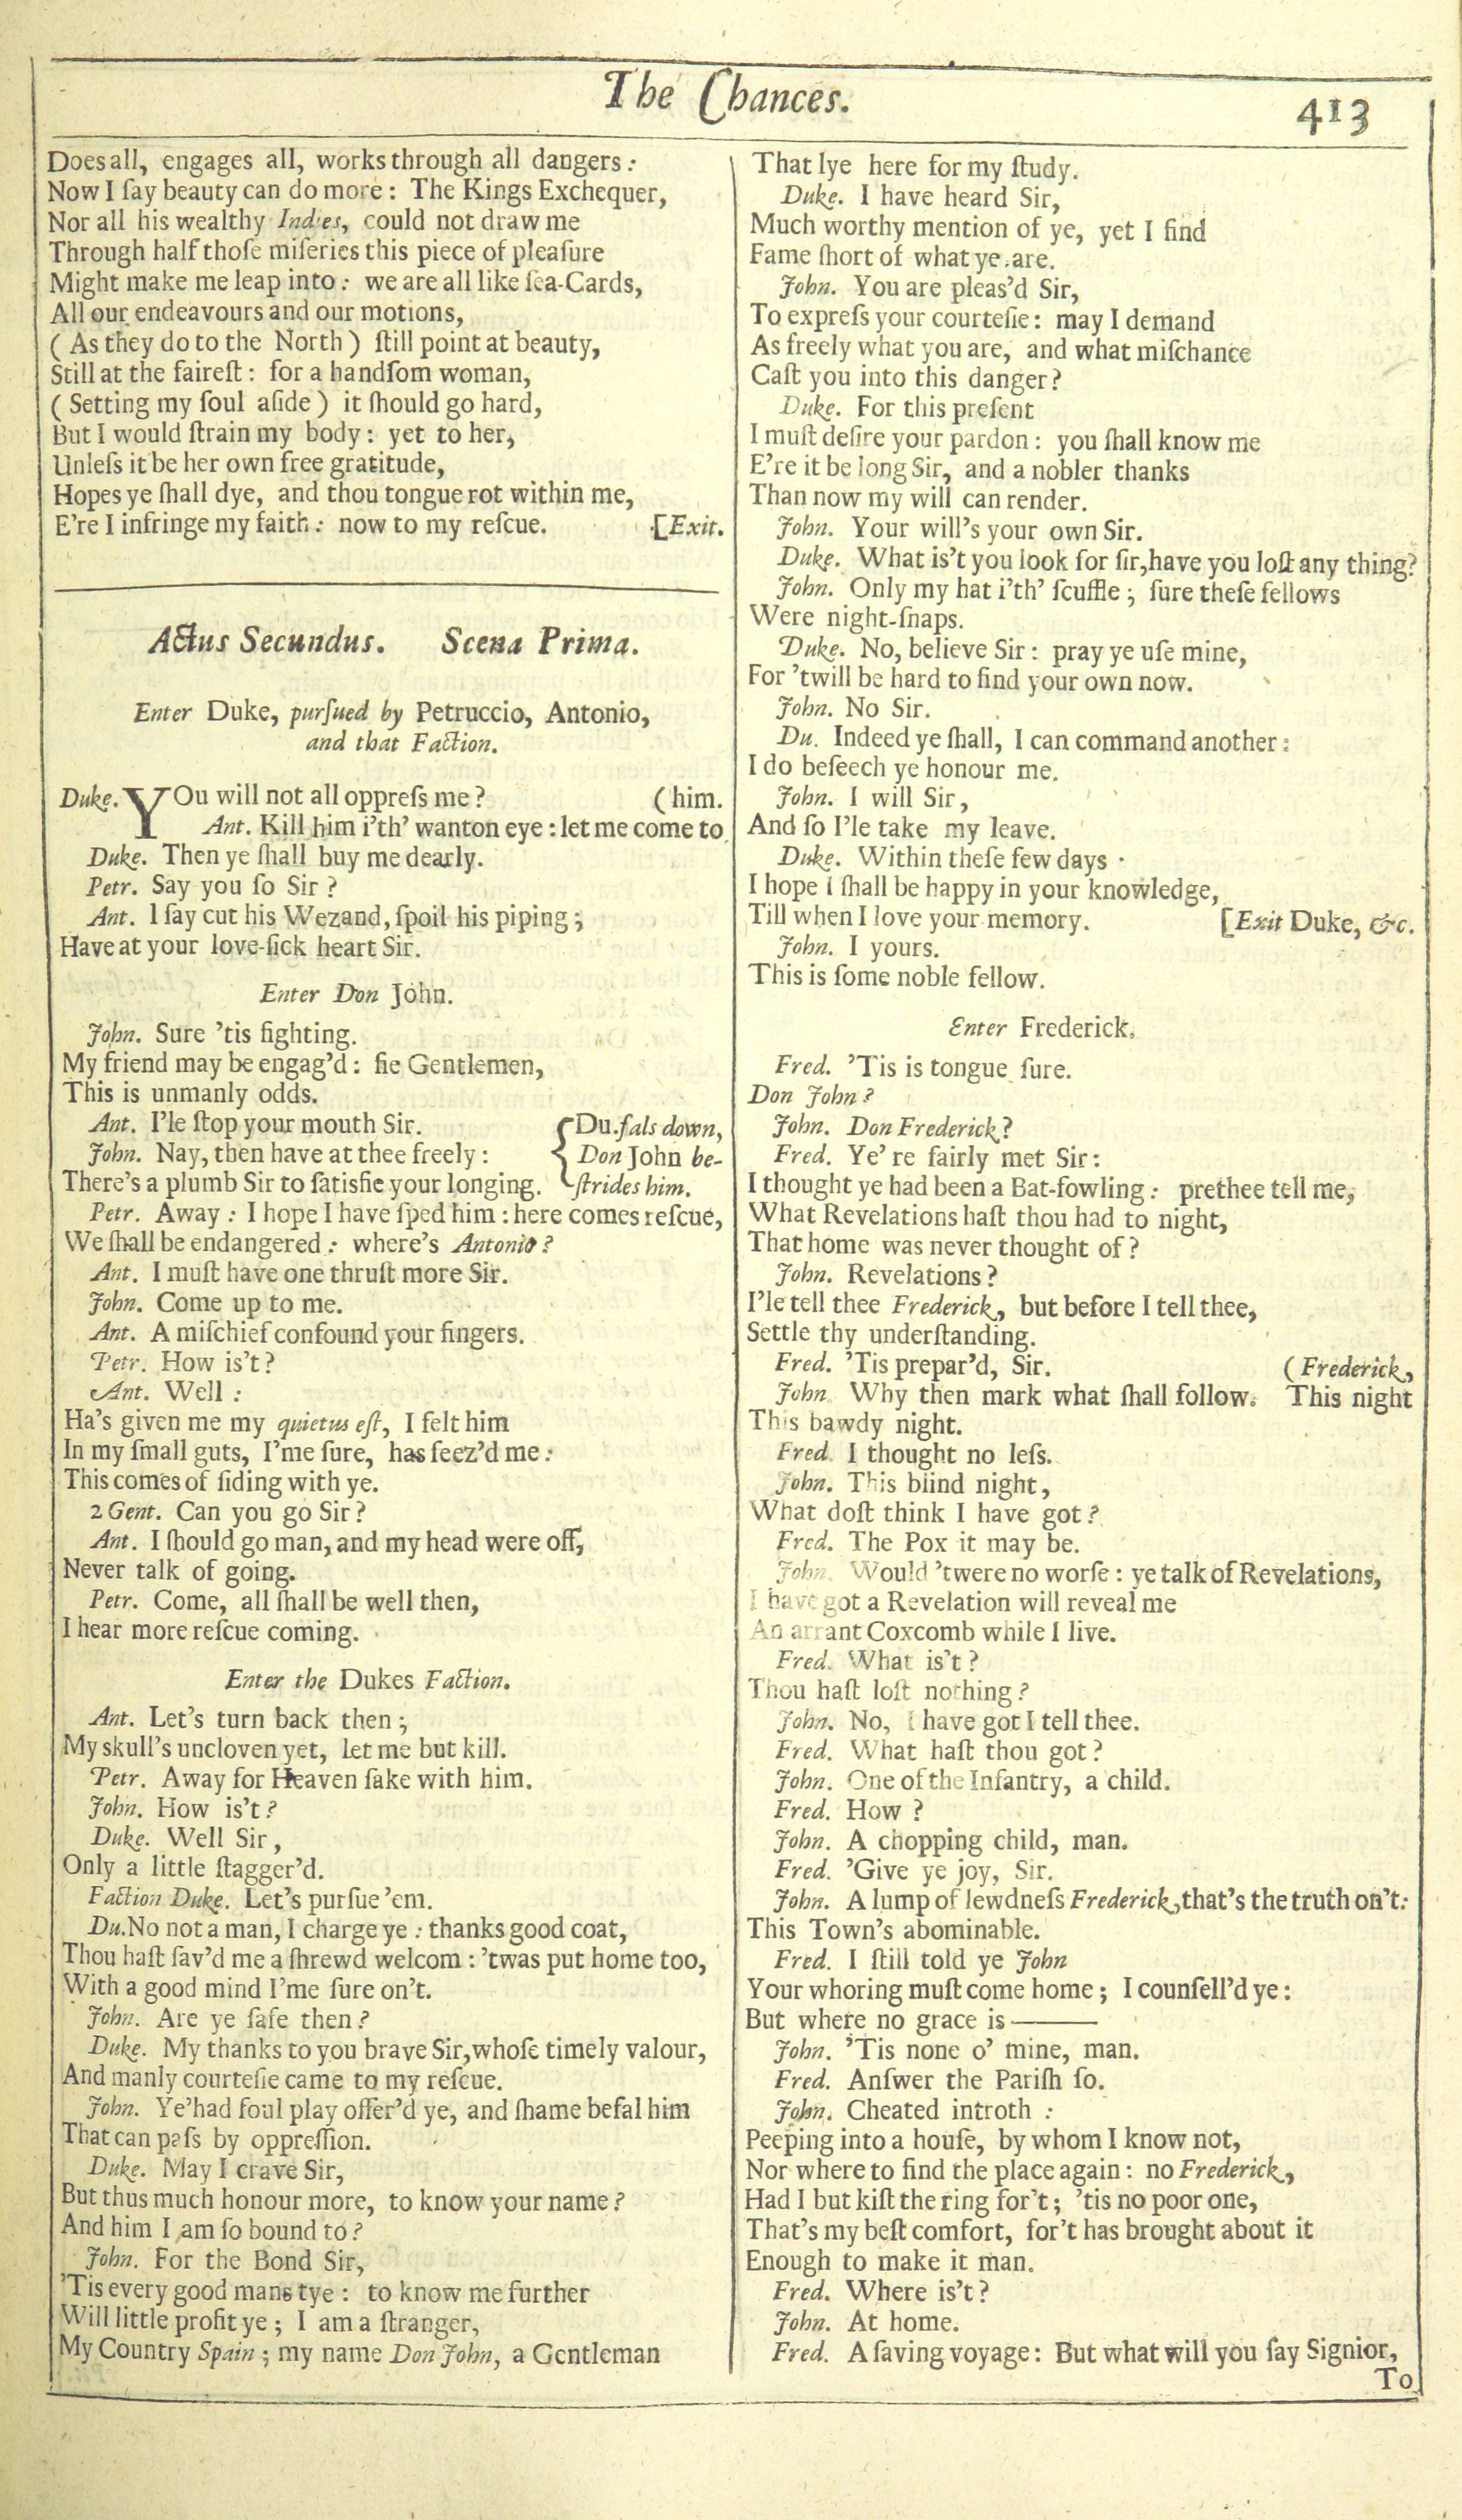 The Chances.
413
Does all, engages all, works through all dangers:
Now I ſay beauty can do more: The Kings Exchequer,
Nor all his wealthy Indies, could not draw me
Through half thoſe miſeries this piece of pleaſure
Might make me leap into: we are all like ſea-Cards,
All our endeavours and our motions,
( As they do to the North ) ſtill point at beauty,
Still at the faireſt: for a handſom woman,
( Setting my ſoul aſide ) it ſhould go hard,
But I would ſtrain my body: yet to her,
Unleſs it be her own free gratitude,
Hopes ye ſhall dye, and thou tongue rot within me,
E're I infringe my faith: now to my reſcue. [Exit.
Actus Secundus. Scena Prima.
Enter Duke, purſued by Petruccio, Antonio,
and that Faction.
Duke. YOu will not all oppreſs me? (him.
Ant. Kill him i'th' wanton eye: let me come to
Duke. Then ye ſhall buy me dearly.
Petr. Say you ſo Sir?
Ant. I ſay cut his Wezand, ſpoil his piping;
Have at your love-ſick heart Sir.
Enter Don John.
John. Sure 'tis fighting.
My friend may be engag'd: fie Gentlemen,
This is unmanly odds.
Ant. I'le ſtop your mouth Sir. {Du. fals down,
John. Nay, then have at thee freely: Don John be-
There's a plumb Sir to ſatisfie your longing. ſtrides him.
Petr. Away: I hope I have ſped him: here comes reſcue,
We ſhall be endangered: where's Antonio?
Ant. I muſt have one thruſt more Sir.
John. Come up to me.
Ant. A miſchief confound your fingers.
Petr. How is't?
Ant. Well:
Ha's given me my quietus eſt, I felt him
In my ſmall guts, I'me ſure, has feez'd me:
This comes of ſiding with ye.
2 Gent. Can you go Sir?
Ant. I ſhould go man, and my head were off,
Never talk of going.
Petr. Come, all ſhall be well then,
I hear more reſcue coming.
Enter the Dukes Faction.
Ant. Let's turn back then;
My skull's uncloven yet, let me but kill.
Petr. Away for Heaven ſake with him.
John. How is't?
Duke. Well Sir,
Only a little ſtagger'd.
Faction Duke. Let's purſue 'em.
Du. No not a man, I charge ye: thanks good coat,
Thou haſt ſav'd me a ſhrewd welcom: 'twas put home too,
With a good mind I'me ſure on't.
John. Are ye ſafe then?
Duke. My thanks to you brave Sir, whoſe timely valour,
And manly courteſie came to my reſcue.
John. Ye'had foul play offer'd ye, and ſhame befal him
That can paſs by oppreſſion.
Duke. May I crave Sir,
But thus much honour more, to know your name?
And him I am ſo bound to?
John. For the Bond Sir,
'Tis every good mans tye: to know me further
Will little profit ye; I am a ſtranger,
My Country Spain; my name Don John, a Gentleman
That lye here for my ſtudy.
Duke. I have heard Sir,
Much worthy mention of ye, yet I find
Fame ſhort of what ye are.
John. You are pleas'd Sir,
To expreſs your courteſie: may I demand
As freely what you are, and what miſchance
Caſt you into this danger?
Duke. For this preſent
I muſt deſire your pardon: you ſhall know me
E're it be long Sir, and a nobler thanks
Than now my will can render.
John. Your will's your own Sir.
Duke. What is't you look for ſir, have you loſt any thing?
John. Only my hat i'th' ſcuffle; ſure theſe fellows
Were night-ſnaps.
Duke. No, believe Sir: pray ye uſe mine,
For 'twill be hard to find your own now.
John. No Sir.
Du. Indeed ye ſhall, I can command another:
I do beſeech ye honour me.
John. I will Sir,
And ſo I'le take my leave.
Duke. Within theſe few days
I hope I ſhall be happy in your knowledge,
Till when I love your memory. [Exit Duke, &c.
John. I yours.
This is ſome noble fellow.
Enter Frederick.
Fred. 'Tis is tongue ſure.
Don John?
John. Don Frederick?
Fred. Ye're fairly met Sir:
I thought ye had been a Bat-fowling: prethee tell me,
What Revelations haſt thou had to night,
That home was never thought of?
John. Revelations?
I'le tell thee Frederick, but before I tell thee,
Settle thy underſtanding.
Fred. 'Tis prepar'd, Sir. (Frederick,
John. Why then mark what ſhall follow. This night
This bawdy night.
Fred. I thought no leſs.
John. This blind night,
What doſt think I have got?
Fred. The Pox it may be.
John. Would 'twere no worſe: ye talk of Revelations,
I have got a Revelation will reveal me
An arrant Coxcomb while I live.
Fred. What is't?
Thou haſt loſt nothing?
John. No, I have got I tell thee.
Fred. What haſt thou got?
John. One of the Infantry, a child.
Fred. How?
John. A chopping child, man.
Fred. 'Give ye joy, Sir.
John. A lump of lewdneſs Frederick, that's the truth on't:
This Town's abominable.
Fred. I ſtill told ye John
Your whoring muſt come home; I counſell'd ye:
But where no grace is———
John. 'Tis none o' mine, man.
Fred. Anſwer the Pariſh ſo.
John. Cheated introth:
Peeping into a houſe, by whom I know not,
Nor where to find the place again: no Frederick,
Had I but kiſt the ring for't; 'tis no poor one,
That's my beſt comfort, for't has brought about it
Enough to make it man.
Fred. Where is't?
John. At home.
Fred. A ſaving voyage: But what will you ſay Signior,
To